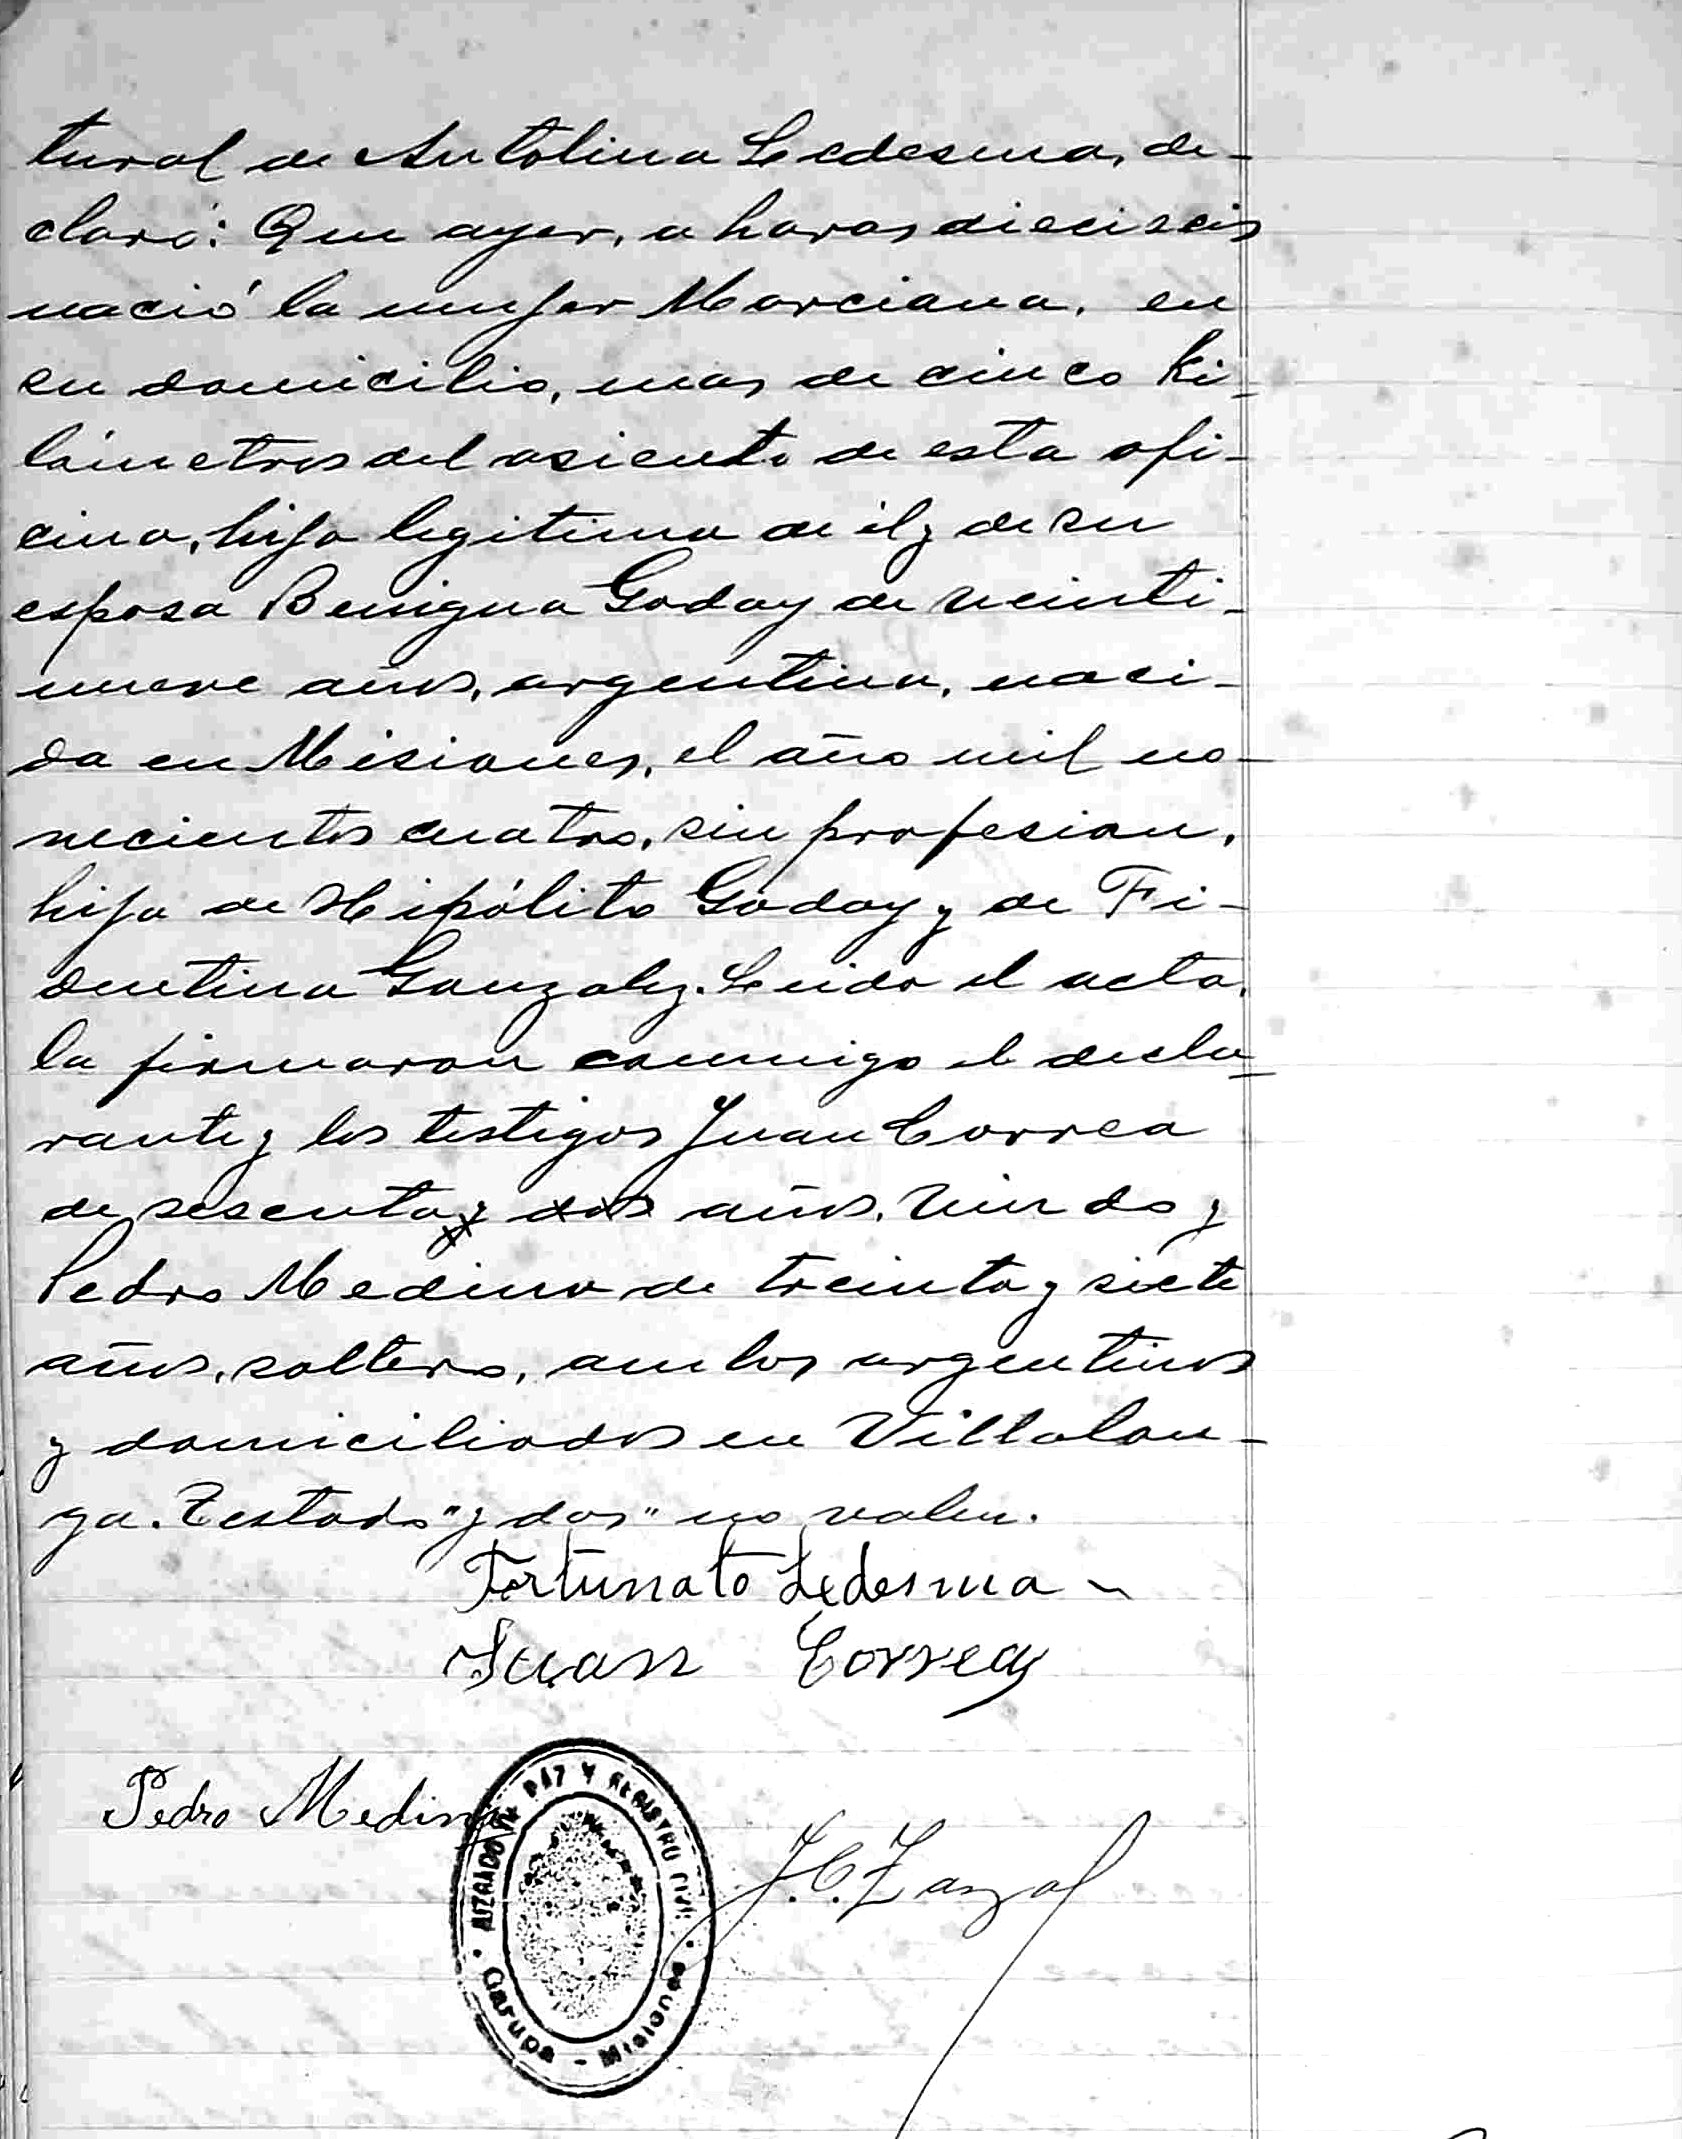 tural de Antolina Ledesma, de-
claró: Que ayer, a horas dieciseis
nació la mujer Marciana, en
su domicilio, mas de cinco ki-
lómetros del asiento de esta ofi-
cina, hija legitima de él y de su
esposa Benigna Godoy de veinti-
nueve años, argentina, naci-
da en Misiones, el año mil no-
vecientos cuatro, sin profesion,
hija de Hipólito Godoy y de Fi-
dentina Gonzalez. Leida el acta,
la firmaron conmigo el decla-
rante y los testigos Juan Correa
de sesenta y dos años, viudo y
Pedro Medina de treinta y siete
años, soltero, ambos argentinos
y domiciliados en Villalon-
ga. Testado "y dos" no valen.
Fortunato Ledesma
Juan Correa
Pedro Medina
JUZGADO DE PAZ Y REGISTRO CIVIL
Garupá - Misiones